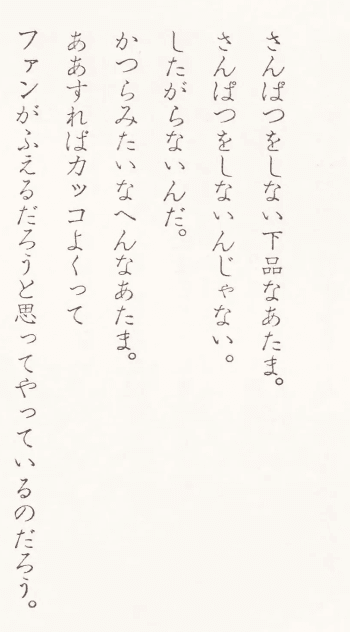 さんぱつをしない下品なあたま。
さんぱつをしないんじゃない。
したがらないんだ。
かつらみたいなへんなあたま。
ああすればカッコよくって
ファンがふえるだろうと思ってやっているのだろう。